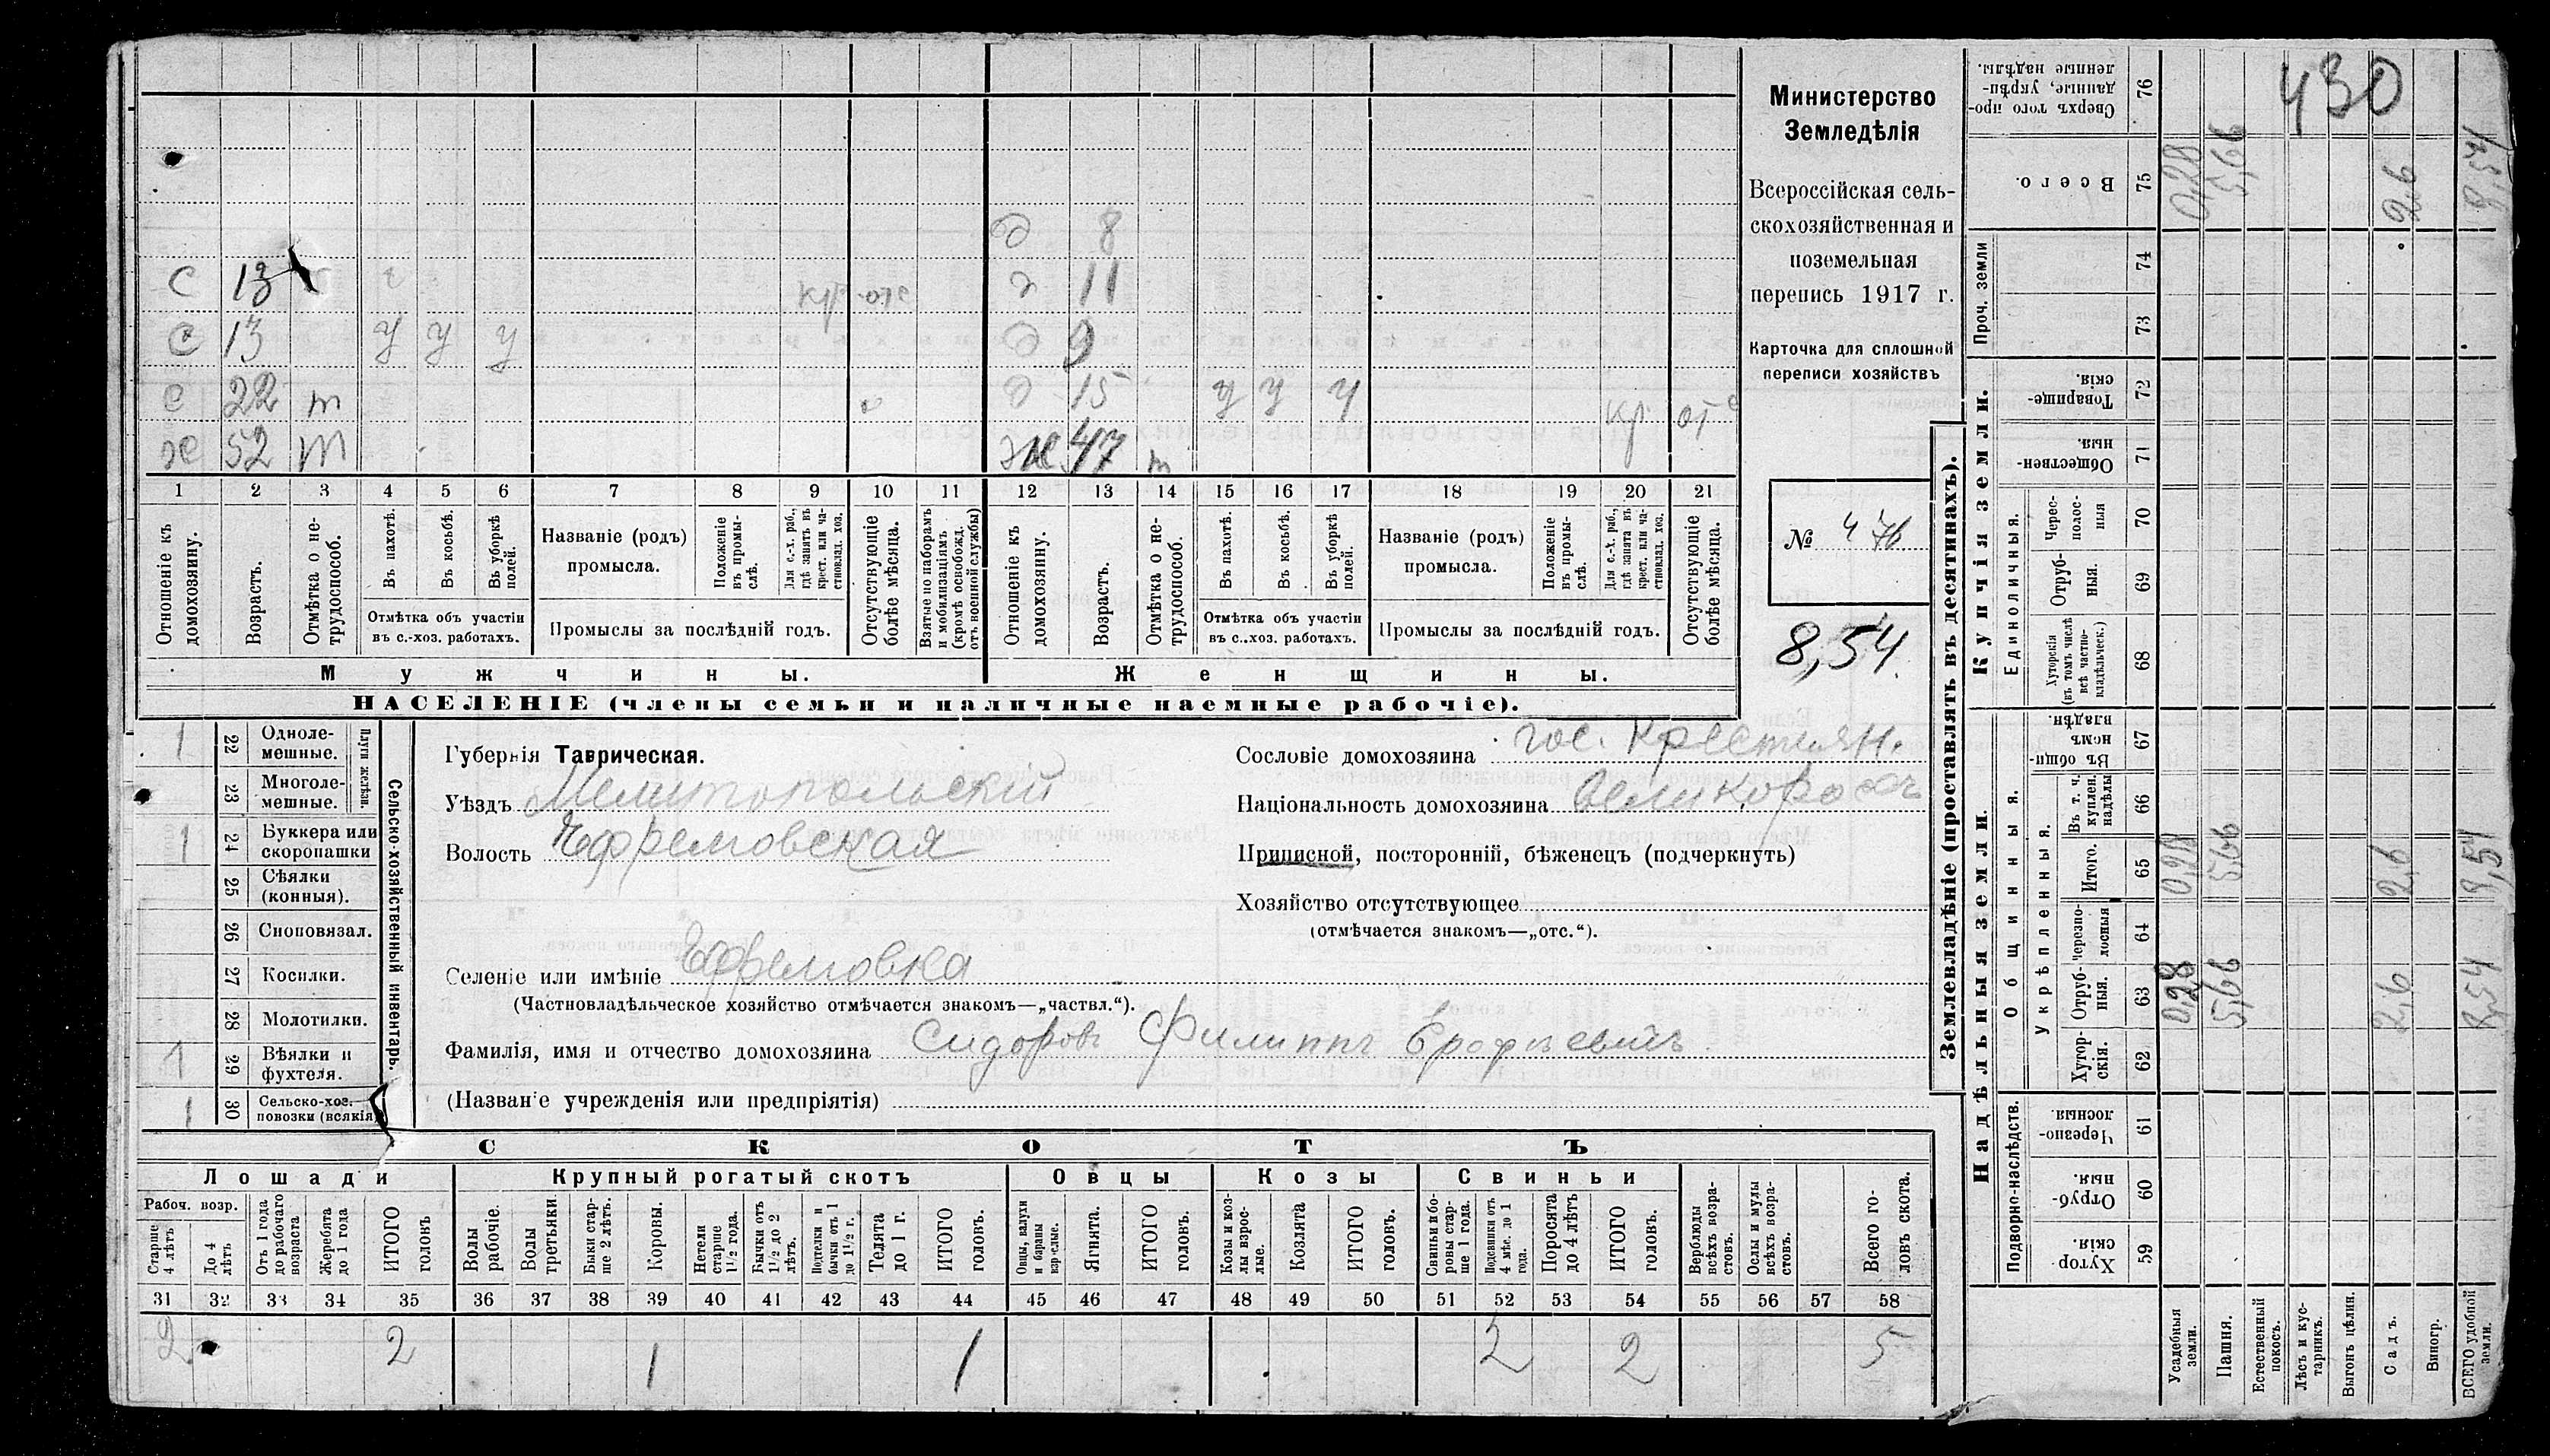 Министерство
Земледѣлія
Всероссійская сель-
скохозяйственная и
поземельная
перепись 1917 г.
Карточка для сплошной
переписи хозяйствъ
№ 476
8,54.
430
д 8
с 13 д 11
с 13 у у у д 9
с 22 т д 15 у у у кр от
х 52 т ж 47 т
1 2 3 4 5 6 7 8 9 10 11 12 13 14 15 16 17 18 19 20 21
Отношеніе къ домохозяину.
Возрастъ.
Отмѣтка о не-трудоспособ.
Въ пахотѣ.
Въ косьбѣ.
Въ уборкѣ полей.
Отмѣтка объ участіи
въ с.-хоз. работахъ.
Названіе (родъ)
промысла.
Положеніе въ промы-слѣ.
Для с.-х. раб., гдѣ занятъ въ крест. или ча-стновлад. хоз.
Промыслы за послѣдній годъ.
Отсутствующіе болѣе мѣсяца.
Взятые по наборамъ и мобилизаціямъ (кромѣ освобожд. отъ военной службы)
Отношеніе къ домохозяину.
Возрастъ.
Отмѣтка о не-трудоспособ.
Въ пахотѣ.
Въ косьбѣ.
Въ уборкѣ полей.
Отмѣтка объ участіи
въ с.-хоз. работахъ.
Названіе (родъ)
промысла.
Положеніе въ промы-слѣ.
Для с.-х. раб., гдѣ занята въ крест. или ча-стновлад. хоз.
Промыслы за послѣдній годъ.
Отсутствующіе болѣе мѣсяца.
Мужчины. Женщины.
НАСЕЛЕНІЕ (члены семьи и наличные наемные рабочіе).
Сельско-хозяйственный инвентарь.
Плуги желѣзн.
1 22 Одноле-мешные.
23 Многоле-мешные.
1 24 Буккера или скоропашки
25 Сѣялки (конныя).
26 Сноповязал.
27 Косилки.
28 Молотилки.
1 29 Вѣялки и фухтеля.
1 30 Сельско-хоз. повозки (всякія)
Губернія Таврическая.
Уѣздъ Мелитопольскій
Волость Ефремовская
Селеніе или имѣніе Ефремовка
(Частновладѣльческое хозяйство отмѣчается знакомъ—„частвл.“).
Сословіе домохозяина гос. крестьян.
Національность домохозяина великоросъ
Приписной, посторонній, бѣженецъ (подчеркнуть)
Хозяйство отсутствующее
(отмѣчается знакомъ—„отс.“).
Фамилія, имя и отчество домохозяина Сидоровъ Филиппъ Ерофѣевичъ
(Названіе учрежденія или предпріятія)
СКОТЪ
Лошади Крупный рогатый скотъ Овцы Козы Свиньи
Рабоч. возр.
Старше 4 лѣтъ
До 4 лѣтъ
Отъ 1 года до рабочаго возраста
Жеребята до 1 года
ИТОГО головъ
Волы рабочіе.
Волы третьяки.
Быки стар-ше 2 лѣтъ.
Коровы.
Нетели старше 1½ года.
Бычки отъ 1½ до 2 лѣтъ.
Подтелки и бычки отъ 1 до 1½ г.
Телята до 1 г.
ИТОГО головъ.
Овцы, валухи и бараны взрослые.
Ягнята.
ИТОГО головъ.
Козы и коз-лы взрос-лые.
Козлята
ИТОГО головъ.
Свиньи и бо-ровы стар-ше 1 года.
Подсвинки отъ 4 мѣс. до 1 года.
Поросята до 4 лѣтъ
ИТОГО головъ.
Верблюды всѣхъ возра-стовъ.
Ослы и мулы всѣхъ возра-стовъ.
Всего го-ловъ скота.
31 32 33 34 35 36 37 38 39 40 41 42 43 44 45 46 47 48 49 50 51 52 53 54 55 56 57 58
2 2 1 1 2 2 5
Землевладѣніе (проставлять въ десятинахъ).
Купчія земли.
Надѣльныя земли.
Сверхъ того про-данные, укрѣп-ленные надѣлы. 76
Всего. 75
Проч. земли 74 73
Товарище-скія. 72
Обществен-ныя. 71
Единоличныя.
Черес-полос-ныя 70
Отруб-ныя. 69
Хуторскія (въ томъ числѣ всѣ частно-владѣльческ.) 68
Общинныя.
Въ общин-номъ владѣн. 67
Укрѣпленныя.
Въ т. ч. куплен. надѣлы 66
Итого. 65
Черезпо-лосныя 64
Отруб-ныя. 63
Хутор-скія. 62
Подворно-наслѣдств.
Черезпо-лосныя. 61
Отруб-ныя. 60
Хутор-скія. 59
Усадебныя земли.
Пашня.
Естественный покосъ.
Лѣсъ и кус-тарникъ.
Выгонъ цѣлин.
Садъ.
Виногр.
ВСЕГО удобной земли.
0,28 5,66 2,6 8,54
0,28 5,66 2,6 8,54
0,28 5,66 2,6 8,54